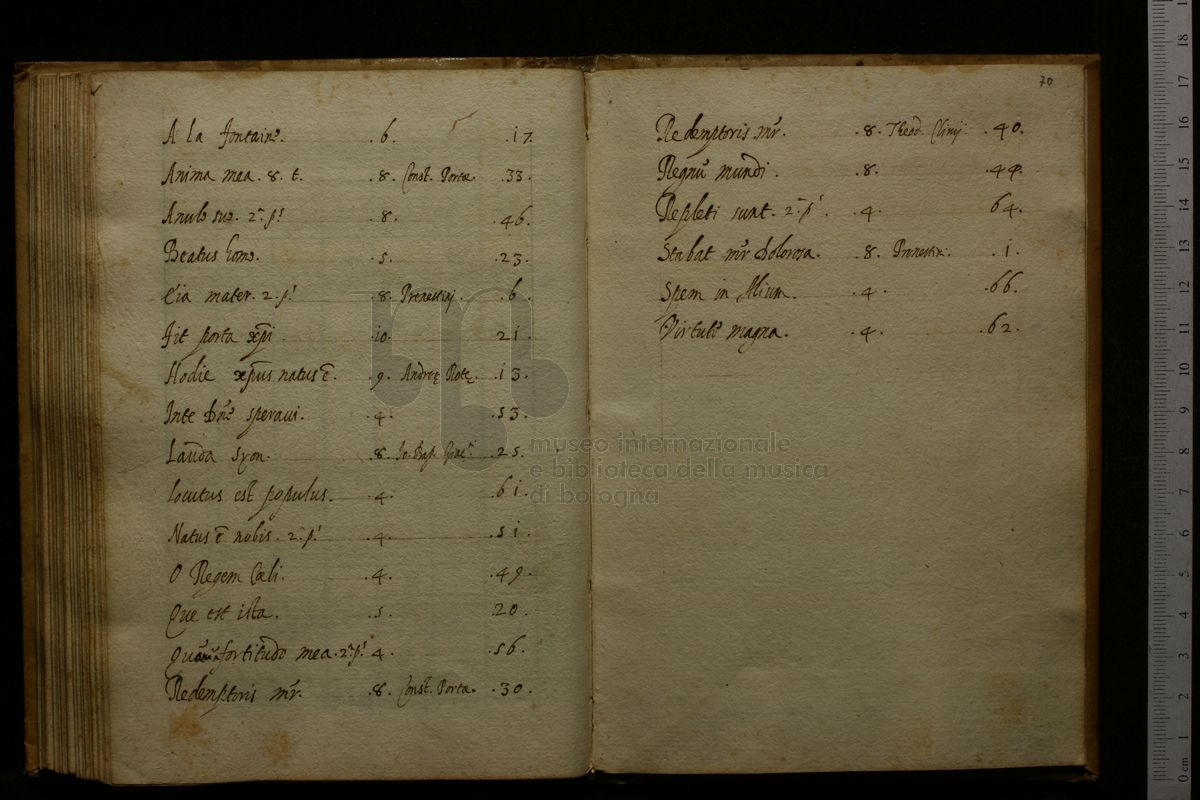 A la fontaine. .6. .17
Anima mea. 8. t. .8. Const. Portae. .33.
Anulo suo. 2.a p.s .8. .46.
Beatus homo. .5. .23.
Eia mater. 2. p.s .8. Prenestinj. .6.
Fit porta xpi. .10. .21.
Hodie xpus natus ē. .9. Andreę Rotę. .13.
In te Dn̄e speravi. .4. .53.
Lauda syon. .8. Jo. Bap. .25.
Locutus est populus. .4. .61.
Natus ē nobis. 2.a p.s .4. .51.
O Regem Cæli. .4. .49.
Que est ista. .5. .20.
fortitudo mea. 2.a p.s 4. .56.
Redemptoris mr̄. .8. Const. Portae. .30.
70
Redemptoris mr̄. .8. Theod. Clinij. .40.
Regnū mundi. .8. .44.
Repleti sunt. 2.a p.s .4. 64.
Stabat mr̄ dolorosa. .8. Prenestin: .1.
Spem in Alium. .4. .66.
Virtute magna. .4. .62.
museo internazionale
e biblioteca della musica
di bologna
0 cm 1 2 3 4 5 6 7 8 9 10 11 12 13 14 15 16 17 18